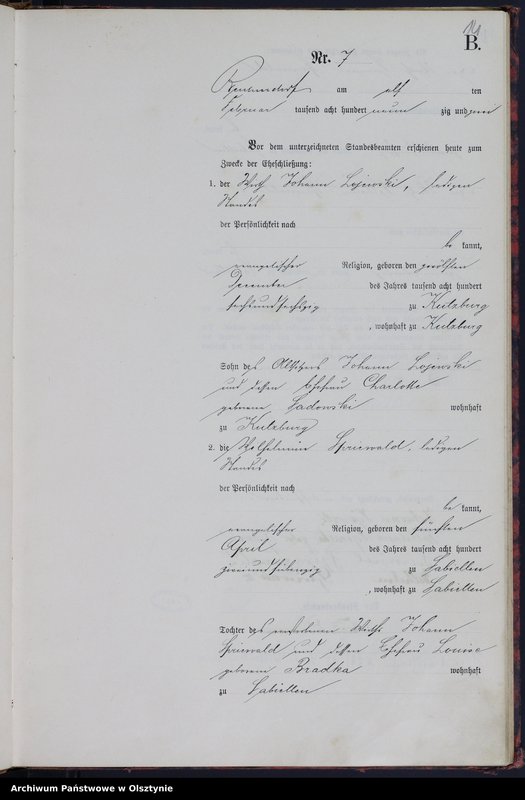 B.
Nr. 7
am elf ten
Februar tausend acht hundert neun zig und zwei
Vor dem unterzeichneten Standesbeamten erschienen heute zum
Zwecke der Eheschließung:
1. der Wirth Johann Lojewski, ledigen
Standes
der Persönlichkeit nach
be kannt,
evangelischer Religion, geboren den zwölften
Dezember des Jahres tausend acht hundert
sechsundsechszig zu Kutzburg
, wohnhaft zu Kutzburg
Sohn des Altsitzers Johann Lojewski
und dessen Ehefrau Charlotte
geborene Sadowski wohnhaft
zu Kutzburg
2. die Wilhelmine Griwald, ledigen
Standes
der Persönlichkeit nach
be kannt,
evangelischer Religion, geboren den fünften
April des Jahres tausend acht hundert
zweiundsiebenzig zu Sabiellen
, wohnhaft zu Sabiellen
Tochter des verstorbenen Wirths Johann
Griwald und dessen Ehefrau Louise
geborene Bradka wohnhaft
zu Sabiellen
Archiwum Państwowe w Olsztynie